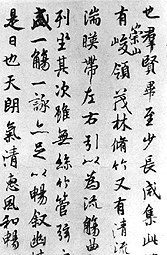 也羣賢畢至少長咸集此
崇山
有峻領茂林脩竹又有清流
湍暎帶左右引以為流觴曲
列坐其次雖無絲竹管弦
盛一觴一詠亦足以暢叙幽
是日也天朗氣清惠風和暢